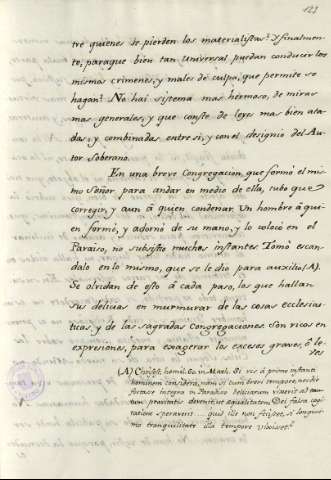 121
tre quienes se pierden los materialistas? Y finalmen-
te, paraque bien tan universal puedan conducir los
mismos crimenes, y males de culpa, que permite se
hagan? No hai sistema mas hermoso, de miras
mas generales, y que conste de leyes mas bien ata-
das, y combinadas entre si, y con el designio del Au-
tor Soberano.
En una breve Congregacion, que formó el mis-
mo Señor para andar en medio de ella, tubo que
corregir, y aun á quien condenar. Un hombre á qui-
en formó, y adornó de su mano, y lo colocó en el
Paraiso, no subsistió muchos instantes. Tomó escan-
dalo en lo mismo, que se le dio para auxilio (A).
Se olvidan de esto á cada paso, los que hallan
sus delicias en murmurar de las cosas ecclesias-
ticas, y de las sagradas Congregaciones. Son ricos en
expresiones, para exagerar los excesos graves, ó le-
ves
(A) homil. in Math. Si vis á primo instanti
hominem considera, nam si cum brevi tempore,
integra in Paradiso deliciarum
pravitatis devenit, ut aequalitatem Dei falsa cogi-
tatione speraverit .... quis ille non fuisset, si longis-
mo tranquilitate illa tempore vixisset?